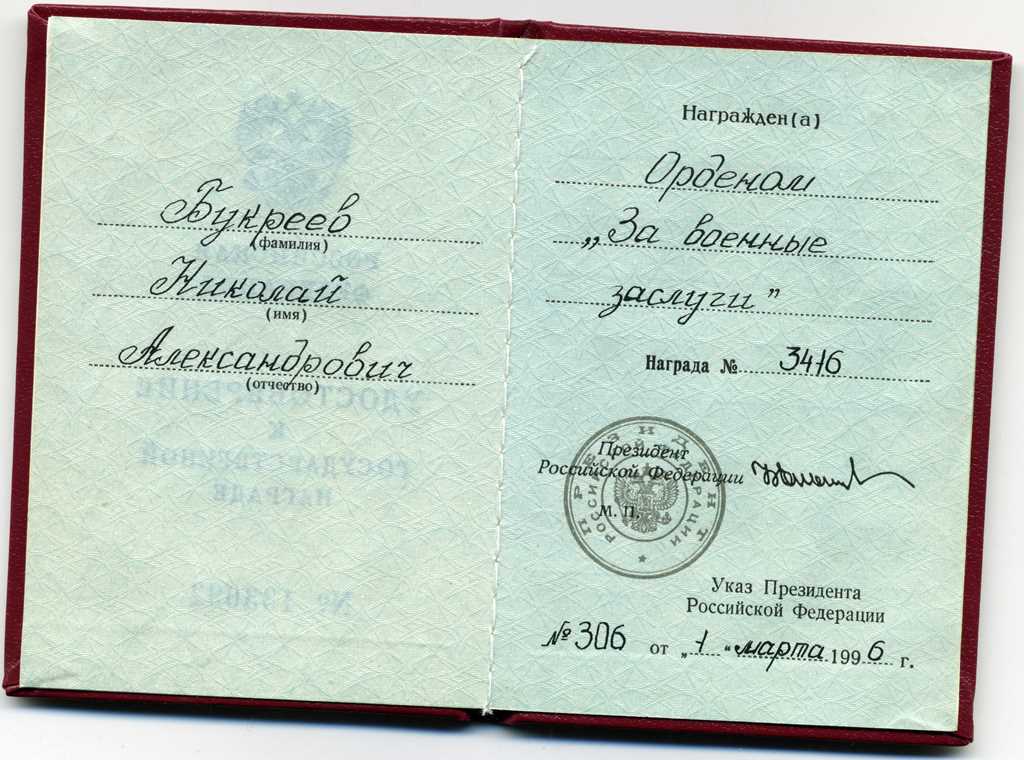 Букреев
(фамилия)
Николай
(имя)
Александрович
(отчество)
Награжден(а)
Орденом
„За военные
заслуги”
Награда № 3416
Президент
Российской Федерации
М. П.
ПРЕЗИДЕНТ
РОССИЙСКОЙ ФЕДЕРАЦИИ
Указ Президента
Российской Федерации
№ 306 от „1“ марта 1996 г.
УДОСТОВЕРЕНИЕ
К
ГОСУДАРСТВЕННОЙ
НАГРАДЕ